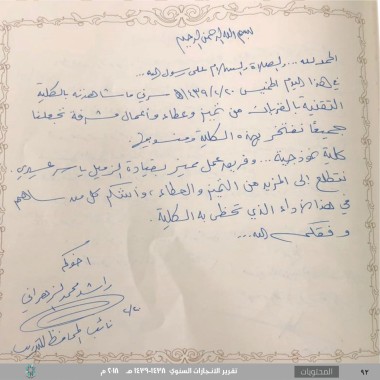 بسم الله الرحمن الرحيم
الحمد لله... والصلاة والسلام على رسول الله...
في هذا اليوم الخميس ١٤٣٩/٢/٢٠هـ سرني ما شاهدته بالكلية
التقنية بالقريات من تميز وعطاء وأعمال مشرفة تجعلنا
جميعًا نفتخر بهذه الكلية ومنسوبيها
كلية نموذجية... وفريق عمل مميز بقيادة الزميل ياسر
نتطلع إلى المزيد من التميز والعطاء، وأشكر كل من ساهم
في هذا الأداء الذي تحظى به الكلية.
وفقكم الله...
أخوكم
راشد محمد الزهراني
نائب المحافظ للتدريب
٩٢
المحتويات
تقرير الانجازات السنوي ١٤٣٨-١٤٣٩ هـ ٢٠١٨ م